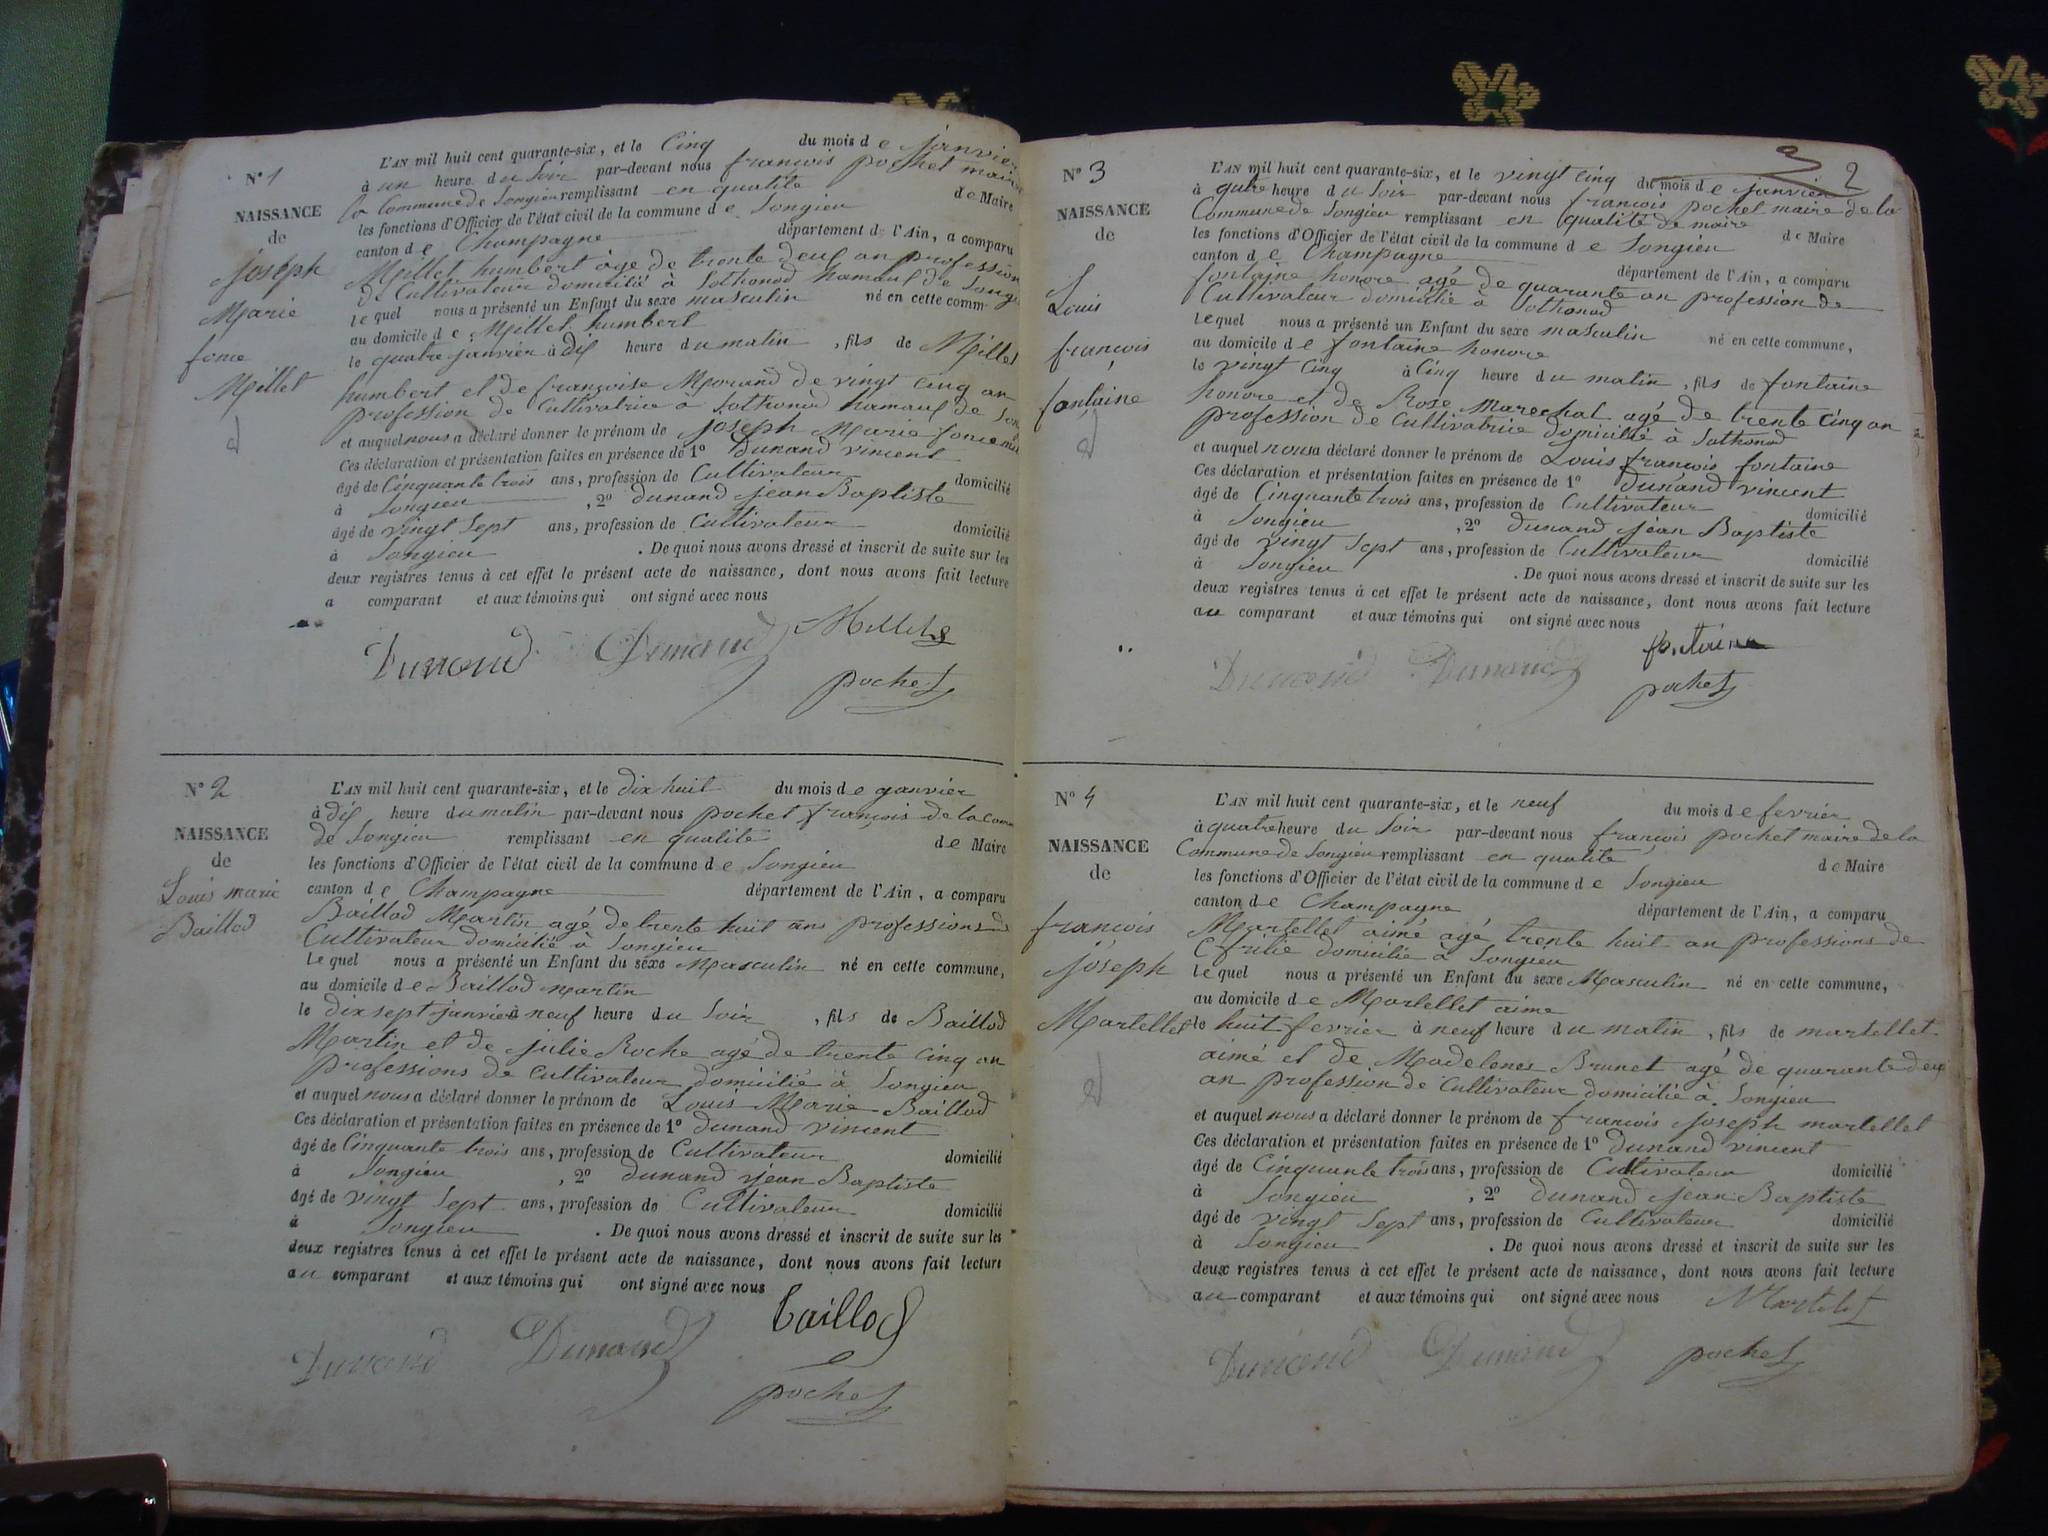 N° 1
NAISSANCE
de
joséph
Marie
fonce
Millet
L'AN mil huit cent quarante-six, et le Cinq du mois de janvier
à un heure du Soir par-devant nous francois pochet maire
la Commune de Songieu remplissant en qualité de Maire
les fonctions d'Officier de l'état civil de la commune de Songieu
canton de Champagne département de l'Ain, a comparu
Millet humbert àge de trente deux an profession
de Cultivateur domicilié à Sothonod hamaux de Songi
lequel nous a présenté un Enfant du sexe masculin né en cette comm-
au domicile de Millet humbert
le quatre janvier à dix heure du matin, fils de Millet
humbert et de françoise Morand de vingt cinq an
profession de Cultivatrice à Sothonod hamaux de Son
et auquel nous a déclaré donner le prénom de joseph Marie fonce mil
Ces déclaration et présentation faites en présence de 1° Dunand vincent
âgé de Cinquante trois ans, profession de Cultivateur domicilié
à Songieu, 2° dunand jean Baptiste
âgé de vingt Sept ans, profession de Cultivateur domicilié
à Songieu. De quoi nous avons dressé et inscrit de suite sur les
deux registres tenus à cet effet le présent acte de naissance, dont nous avons fait lecture
a comparant et aux témoins qui ont signé avec nous
Dunand Dunand Millet
pochet
N° 2
NAISSANCE
de
Louis marie
Baillod
L'AN mil huit cent quarante-six, et le dix huit du mois de janvier
à dix heure du matin par-devant nous pochet françois de la com
de Songieu remplissant en qualité de Maire
les fonctions d'Officier de l'état civil de la commune de Songieu
canton de Champagne département de l'Ain, a comparu
Baillod Martin agé de trente huit ans professions de
Cultivateur domicilié à Songieu
lequel nous a présenté un Enfant du sexe Masculin né en cette commune,
au domicile de Baillod Martin
le dix sept janvier à neuf heure du Soir, fils de Baillod
Martin et de julie Roche agé de trente cinq an
professions de Cultivateur domicilié à Songieu
et auquel nous a déclaré donner le prénom de Louis Marie Baillod
Ces déclaration et présentation faites en présence de 1° dunand vincent
âgé de Cinquante trois ans, profession de Cultivateur domicilié
à Songieu, 2° dunand jean Baptiste
âgé de vingt Sept ans, profession de Cultivateur domicilié
à Songieu. De quoi nous avons dressé et inscrit de suite sur les
deux registres tenus à cet effet le présent acte de naissance, dont nous avons fait lecture
au comparant et aux témoins qui ont signé avec nous
Baillod
Dunand Dunand
pochet
2
N° 3
NAISSANCE
de
Louis
francois
fontaine
L'AN mil huit cent quarante-six, et le vingt cinq du mois de janvier
à qutre heure du Soir par-devant nous francois pochet maire de la
Commune de Songieu remplissant en qualité de maire de Maire
les fonctions d'Officier de l'état civil de la commune de Songieu
canton de Champagne département de l'Ain, a comparu
fontaine honore agé de quarante an profession de
Cultivateur domicilié à Sothonod
lequel nous a présenté un Enfant du sexe masculin né en cette commune,
au domicile de fontaine honore
le vingt Cinq à Cinq heure du matin, fils de fontaine
honore et de Rose Marechal agé de trente Cinq an
profession de Cultivatrice domicilié à Sothonod
et auquel nous a déclaré donner le prénom de Louis francois fontaine
Ces déclaration et présentation faites en présence de 1° dunand vincent
âgé de Cinquante trois ans, profession de Cultivateur domicilié
à Songieu, 2° dunand jean Baptiste
âgé de vingt Sept ans, profession de Cultivateur domicilié
à Songieu. De quoi nous avons dressé et inscrit de suite sur les
deux registres tenus à cet effet le présent acte de naissance, dont nous avons fait lecture
au comparant et aux témoins qui ont signé avec nous
fontaine
Dunand Dunand
pochet
N° 4
NAISSANCE
de
francois
joseph
Martellet
L'AN mil huit cent quarante-six, et le neuf du mois de fevrier
à quatre heure du Soir par-devant nous francois pochet maire de la
Commune de Songieu remplissant en qualité de Maire
les fonctions d'Officier de l'état civil de la commune de Songieu
canton de Champagne département de l'Ain, a comparu
Martellet aimé agé trente huit an professions de
domicilié à Songieu
lequel nous a présenté un Enfant du sexe Masculin né en cette commune,
au domicile de Martellet aime
le huit fevrier à neuf heure du matin, fils de martellet
aimé et de Madelenes Brunet agé de quarante deux
an profession de Cultivateur domicilié à Songieu
et auquel nous a déclaré donner le prénom de francois joseph martellet
Ces déclaration et présentation faites en présence de 1° dunand vincent
âgé de Cinquante trois ans, profession de Cultivateur domicilié
à Songieu, 2° dunand jean Baptiste
âgé de vingt Sept ans, profession de Cultivateur domicilié
à Songieu. De quoi nous avons dressé et inscrit de suite sur les
deux registres tenus à cet effet le présent acte de naissance, dont nous avons fait lecture
au comparant et aux témoins qui ont signé avec nous Martelet
Dunand Dunand pochet